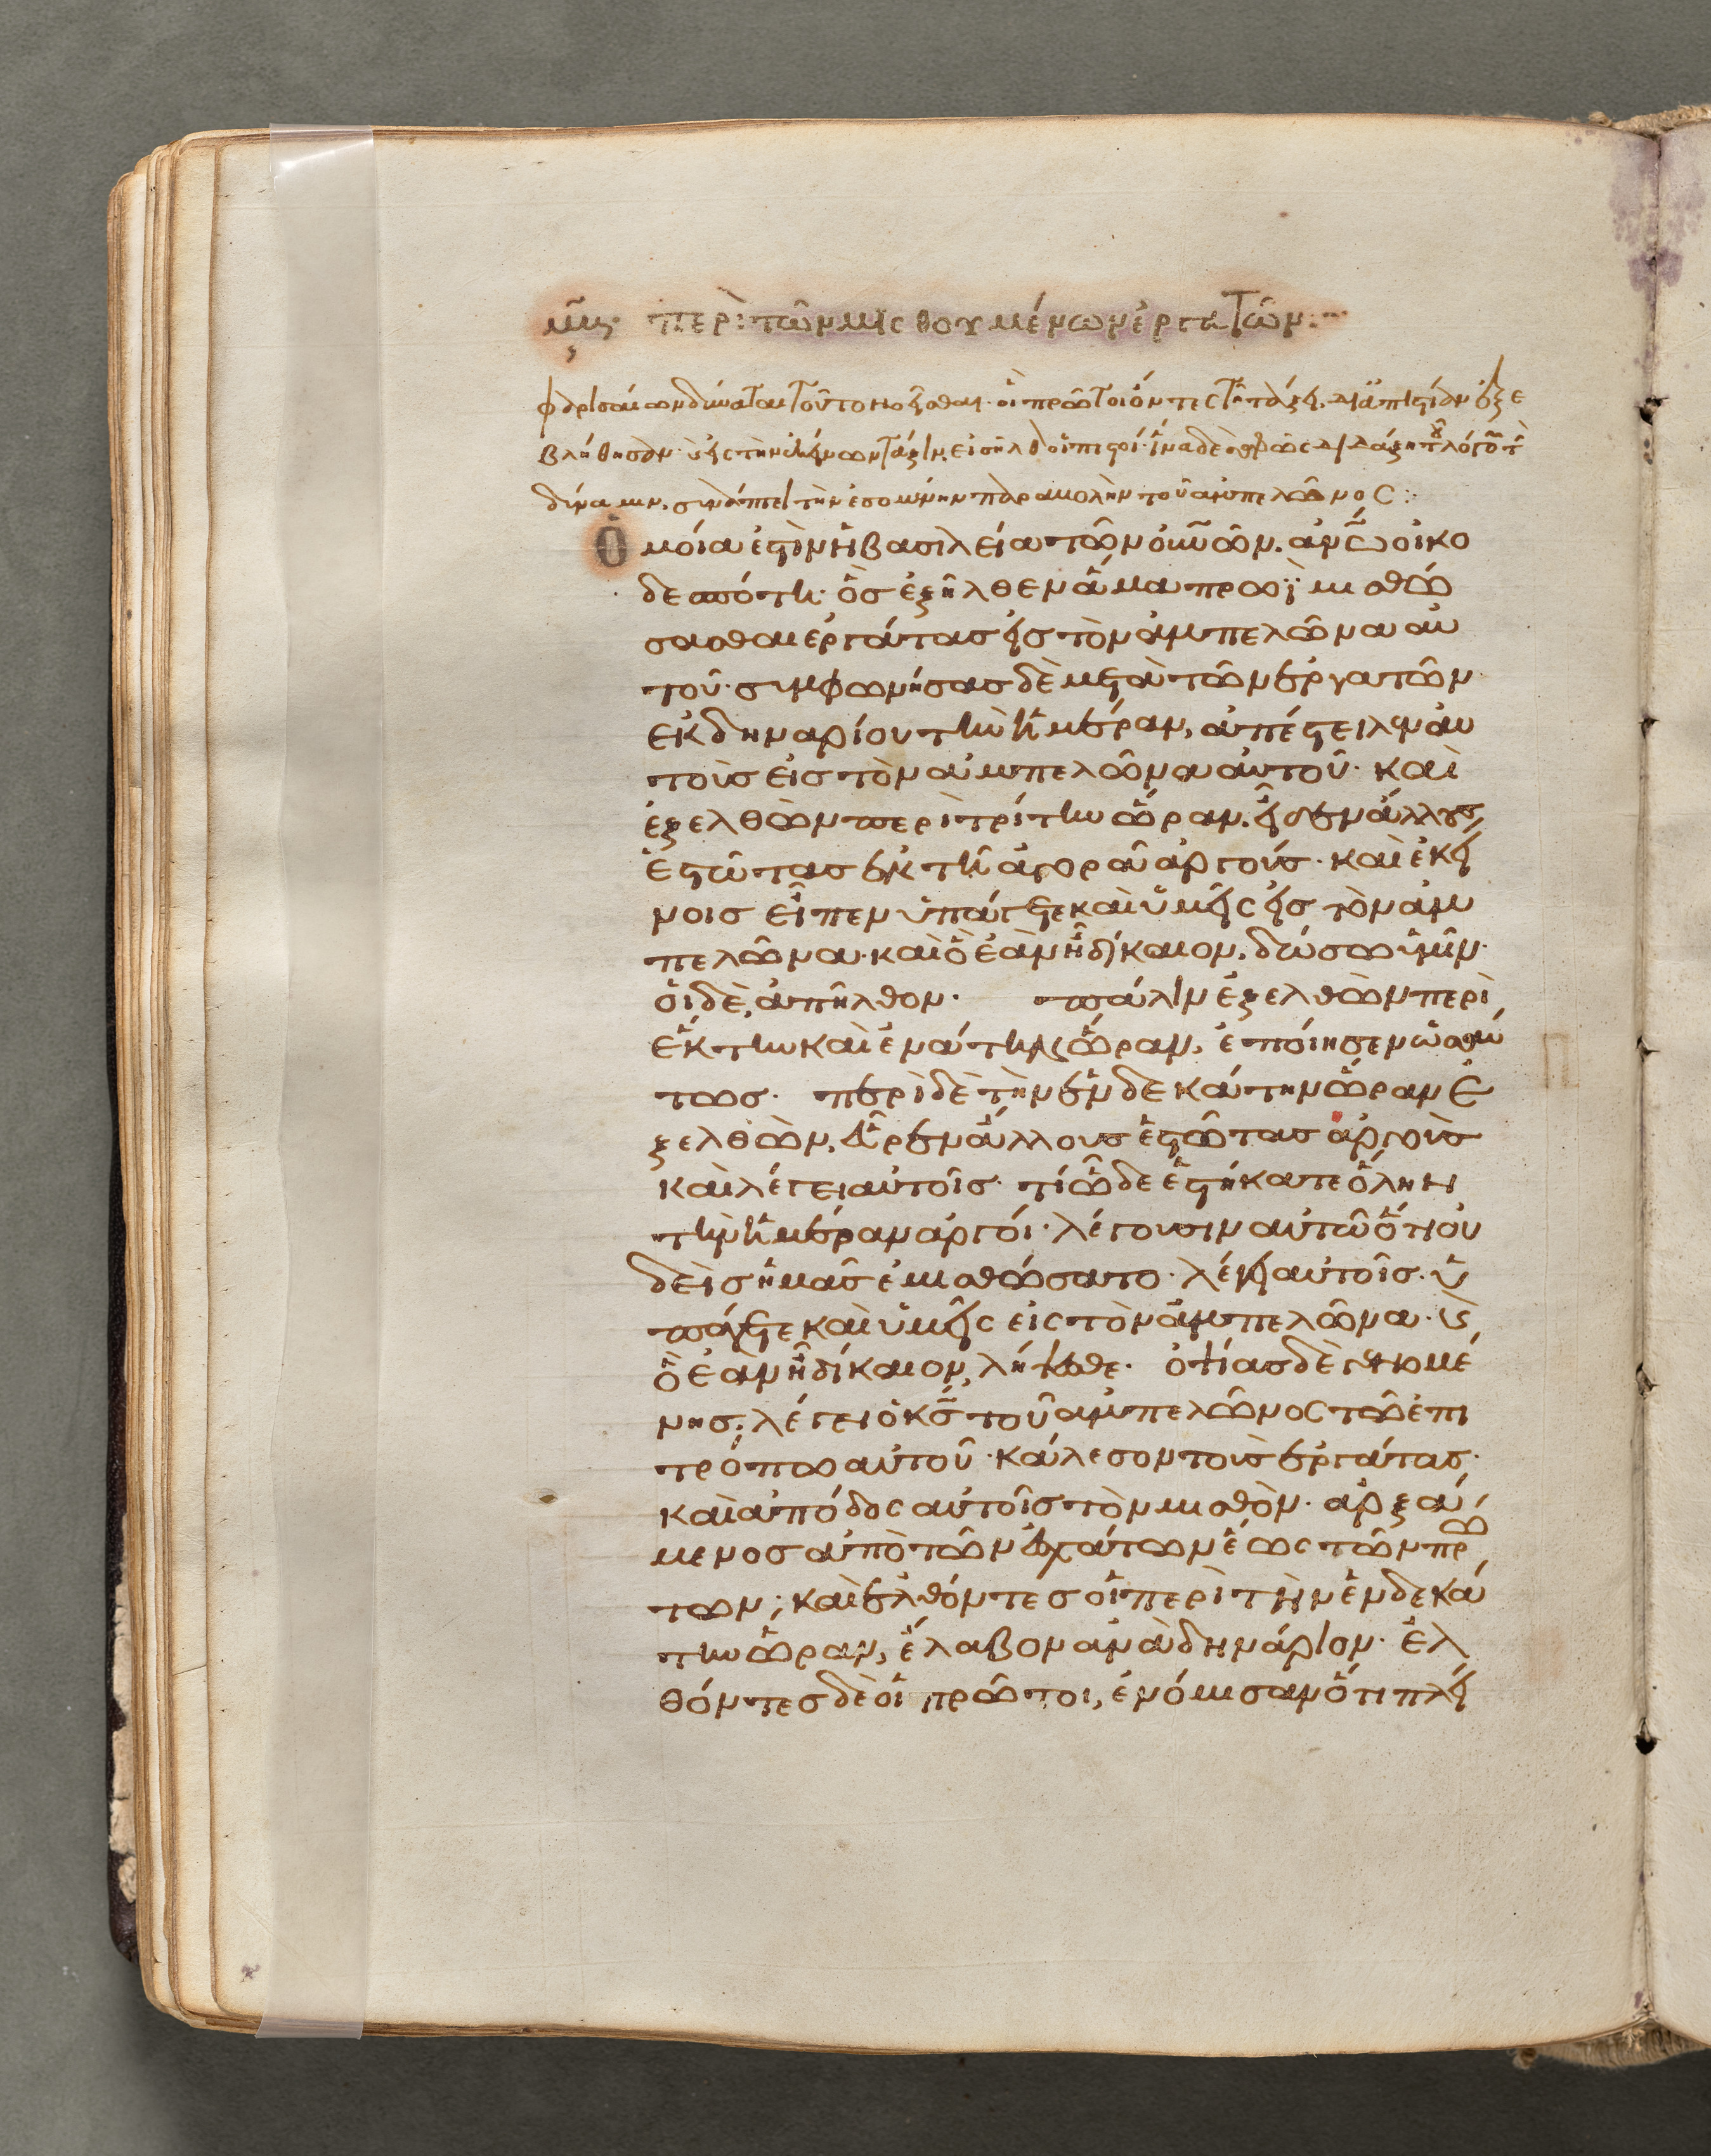 περὶ τῶν μισθουμένων ἐργατῶν
βλήθησαν
ἵνα δὲ
συνάπτει τὴν ἑσομένην παραβολὴν τοῦ ἀμπελῶνος :
Ὁμοία ἐστὶν ἡ βασιλεία τῶν οὐνῶν. ἀνῶ οἰκο
δεσπότη· ὃς ἐξῆλθεν ἅμα πρωῒ μισθώ
σασθαι ἐργάτας εἰς τὸν ἀμπελῶνα αὐ
τοῦ· συμφωνήσας δὲ μετὰ τῶν ἐργατῶν
ἐκ δηναρίου τὴν ἡμέραν, ἀπέστειλεν αὐ
τοὺς εἰς τὸν ἀμπελῶνα αὐτοῦ· καὶ
ἐξελθὼν περὶ τρίτην ὥραν. εἶδεν ἄλλους
ἑστῶτας ἐν τῇ ἀγορᾷ ἀργούς· καὶ ἐκεί
νοις εἶπεν ὑπάγετε καὶ ὑμεῖς εἰς τὸν ἀμ
πελῶνα· καὶ ὃ ἐὰν ἦ δίκαιον, δώσω ὑμῖν·
οἱ δὲ, ἀπῆλθον· πάλιν ἐξελθὼν περὶ
ἕκτην καὶ ἐνάτην ὥραν, ἐποίησεν ὡσαύ
τως· περὶ δὲ τὴν ἑνδεκάτην ὥραν ἐ
ξελθὼν, εὗρεν ἄλλους ἑστῶτας ἀργοὺς
καὶ λέγει αὐτοῖς· τί ὧδε ἑστήκατε ὅλην
τὴν ἡμέραν ἀργοί· λέγουσιν αὐτῶ ὅτι οὐ
δεὶς ἡμᾶς ἐμισθώσατο· λέγει αὐτοῖς· ὑ
πάγετε καὶ ὑμεῖς εἰς τὸν ἀμπελῶνα· καὶ
ὃ ἐὰν ἦ δίκαιον, λήψεσθε· ὀψίας δὲ γενομέ
νης, λέγει ὁ κς τοῦ ἀμπελῶνος τῶ ἐπι
τρόπω αὐτοῦ· κάλεσον τοὺς ἐργάτας·
καὶ ἀπόδος αὐτοῖς τὸν μισθὸν· ἀρξά
μενος ἀπὸ τῶν ἐσχάτων ἕως τῶν πρώ
των; καὶ ἐλθόντες οἱ περὶ τὴν ἑνδεκά
την ὥραν, ἔλαβον ἀνὰ δηνάριον· ἐλ
θόντες δὲ οἱ πρῶτοι, ἐνόμισαν ὅτι πλεί